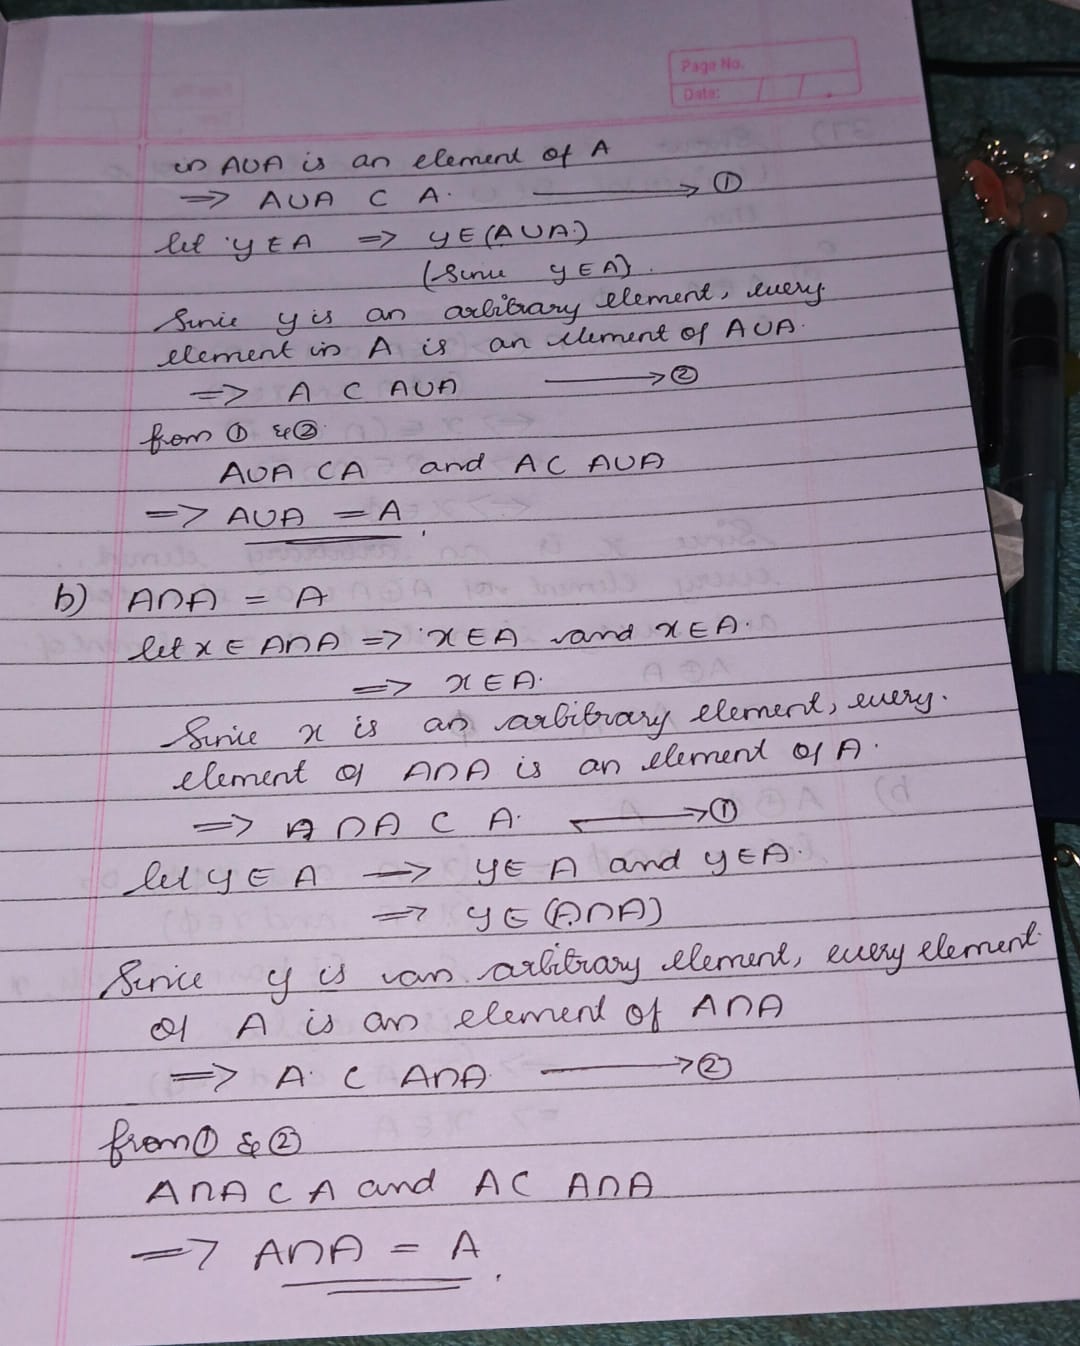 Page No.
Date: / / .
in A∪A is an element of A
=> A∪A ⊂ A. ⟶ ①
let y ∈ A => y ∈ (A∪A)
(Since y ∈ A).
Since y is an arbitrary element, every
element in A is an element of A∪A.
=> A ⊂ A∪A ⟶ ②
from ① & ②
A∪A ⊂ A and A ⊂ A∪A
=> A∪A = A.
b) A∩A = A
let x ∈ A∩A => x ∈ A and x ∈ A.
=> x ∈ A.
Since x is an arbitrary element, every
element of A∩A is an element of A.
=> A∩A ⊂ A. ⟶ ①
let y ∈ A => y ∈ A and y ∈ A.
=> y ∈ (A∩A)
Since y is an arbitrary element, every element
of A is an element of A∩A
=> A ⊂ A∩A ⟶ ②
from ① & ②
A∩A ⊂ A and A ⊂ A∩A
=> A∩A = A.